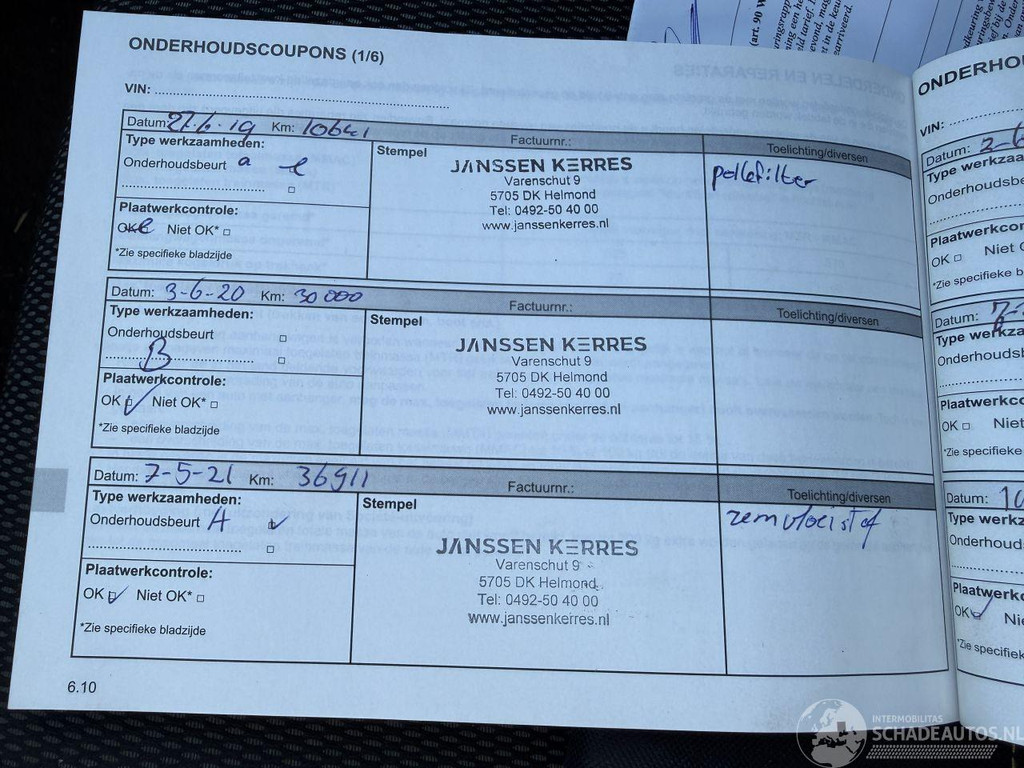 ONDERHOUDSCOUPONS (1/6)
VIN:
Datum: 27-6-19 Km: 10641 Factuurnr.: Toelichting/diversen
Type werkzaamheden:
Onderhoudsbeurt a
Stempel
JANSSEN KERRES
Varenschut 9
5705 DK Helmond
Tel: 0492-50 40 00
www.janssenkerres.nl
pollefilter
Plaatwerkcontrole:
OK Niet OK*
*Zie specifieke bladzijde
Datum: 3-6-20 Km: 30000 Factuurnr.: Toelichting/diversen
Type werkzaamheden:
Onderhoudsbeurt
B
Stempel
JANSSEN KERRES
Varenschut 9
5705 DK Helmond
Tel: 0492-50 40 00
www.janssenkerres.nl
Plaatwerkcontrole:
OK Niet OK*
*Zie specifieke bladzijde
Datum: 7-5-21 Km: 36911 Factuurnr.: Toelichting/diversen
Type werkzaamheden:
Onderhoudsbeurt A
Stempel
JANSSEN KERRES
Varenschut 9
5705 DK Helmond
Tel: 0492-50 40 00
www.janssenkerres.nl
remvloeistof
Plaatwerkcontrole:
OK Niet OK*
*Zie specifieke bladzijde
6.10
(art. 90 W
ONDERHOU
VIN:
Datum:
Type werkzaa
Onderhoudsbe
Plaatwerkcon
OK Niet O
*Zie specifieke b
Datum:
Type werkza
Onderhoudsb
Plaatwerkcont
OK Niet
*Zie specifieke
Datum: 10
Type werkz
Onderhouds
Plaatwerkc
OK Nie
*Zie specifiek
INTERMOBILITAS
SCHADEAUTOS.NL